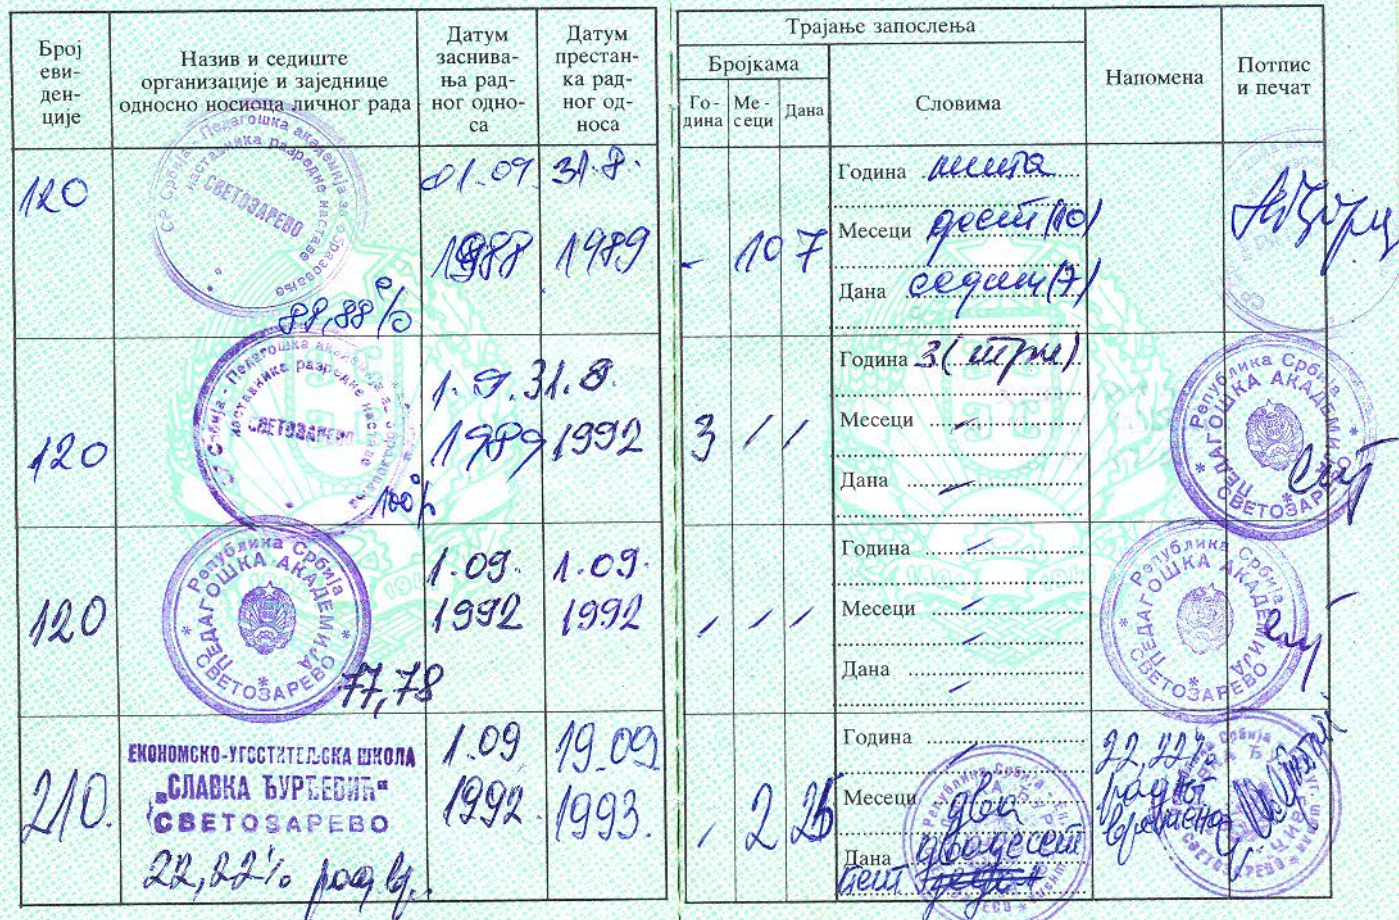 Број
еви-
ден-
ције
Назив и седиште
организације и заједнице
односно носиоца личног рада
Датум
заснива-
ња рад-
ног одно-
са
Датум
престан-
ка рад-
ног од-
носа
Трајање запослења
Бројкама
Го-
дина
Ме-
сеци
Дана
Словима
Напомена
Потпис
и печат
120
СР Србија - Педагошка академија за образовање
наставника разредне наставе
СВЕТОЗАРЕВО
88,88%
01.09.
1988
31.8.
1989
- 10 7
Година ништа
Месеци десет (10)
Дана седам (7)
120
СР Србија - Педагошка академија за образовање
наставника разредне наставе
СВЕТОЗАРЕВО
100%
1.9.
1989
31.8.
1992
3 / /
Година 3 (три)
Месеци
Дана
Република Србија
ПЕДАГОШКА АКАДЕМИЈА
СВЕТОЗАРЕВО
120
Република Србија
ПЕДАГОШКА АКАДЕМИЈА
СВЕТОЗАРЕВО
77,78
1.09.
1992
1.09.
1992
/ / /
Година
Месеци
Дана
Република Србија
ПЕДАГОШКА АКАДЕМИЈА
СВЕТОЗАРЕВО
210.
ЕКОНОМСКО-УГОСТИТЕЉСКА ШКОЛА
„СЛАВКА ЂУРЂЕВИЋ“
СВЕТОЗАРЕВО
22,22% рад. вр.
1.09
1992.
19.09
1993.
/ 2 25
Година
Месеци два
Дана двадесет
пет
22,22%
радног
времена